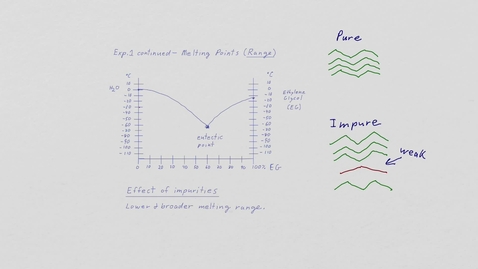 Exp.1 continued - Melting Points (Range)
°C °C
H₂O
0 0
-10 -10
-20 -20
-30 -30
-40 -40
-50 -50
-60 -60
-70 -70
-80 -80
-90 -90
-100 -100
-110 -110
Ethylene
Glycol
(EG)
eutectic
point
0 10 20 30 40 50 60 70 80 90 100% EG
Effect of impurities
Lower & broader melting range.
Pure
Impure
weak